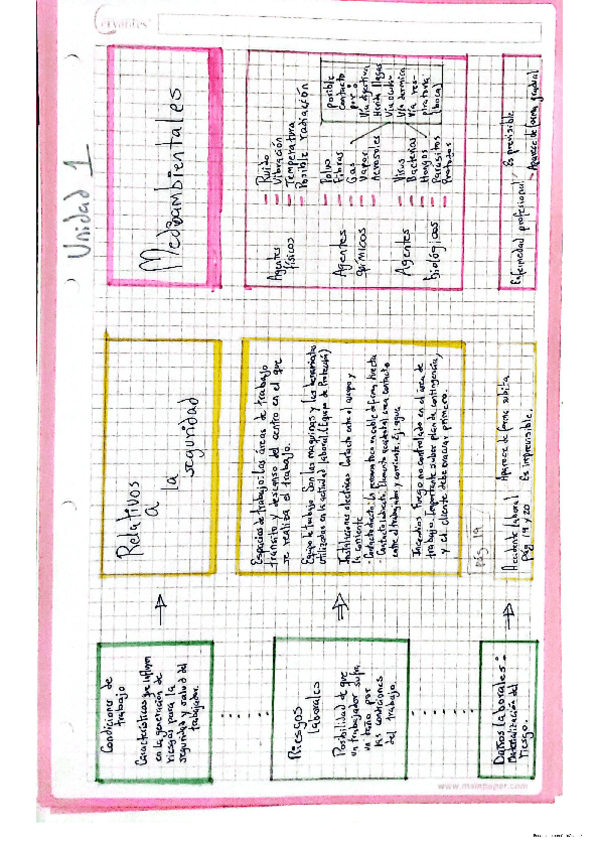 Cervantes
Unidad 1
Condiciones de
trabajo
Características que influyen
en la generación de
riesgos para la
seguridad y salud del
trabajador.
Relativos
a
la
seguridad
Medioambientales
Riesgos
laborales
Posibilidad de que
un trabajador sufra
un daño por
las condiciones
del trabajo.
Espacios de trabajo: Las áreas de trabajo
tránsito y descanso del centro en el que
se realiza el trabajo.
Equipo de trabajo. Son las maquinas y las
utilizadas en la actividad laboral. (Equipo de Protección)
Instalaciones eléctricas. Contacto entre el cuerpo y
la corriente
- Contacto directo. La persona toca un cable de forma directa
- Contacto indirecto. Elemento accidental crea contacto
entre el trabajador y corriente. Ej: agua
Incendios. Fuego no controlado en el área de
trabajo. Importante saber plan de contingencia,
y el cliente debe evacuar primero.
Agentes
físicos
- Ruido
- Vibración
- Temperatura
- Posible radiación
Agentes
químicos
- Polvo
- Fibras
- Gas
- Vapor
- Aerosoles
Agentes
biológicos
- Virus
- Bacterias
- Hongos
- Parásitos
posible
contacto
por
Vía digestiva
Herida llagas
Vía ocular
Vía dermica
Vía res-
piratoria
(boca)
pág 19
Daños laborales:
Materialización del
riesgo.
Accidente laboral Aparece de forma subita
pág 19 y 20 Es imprevisible.
Enfermedad profesional Es previsible
- Aparece de forma gradual
www.mainpaper.com